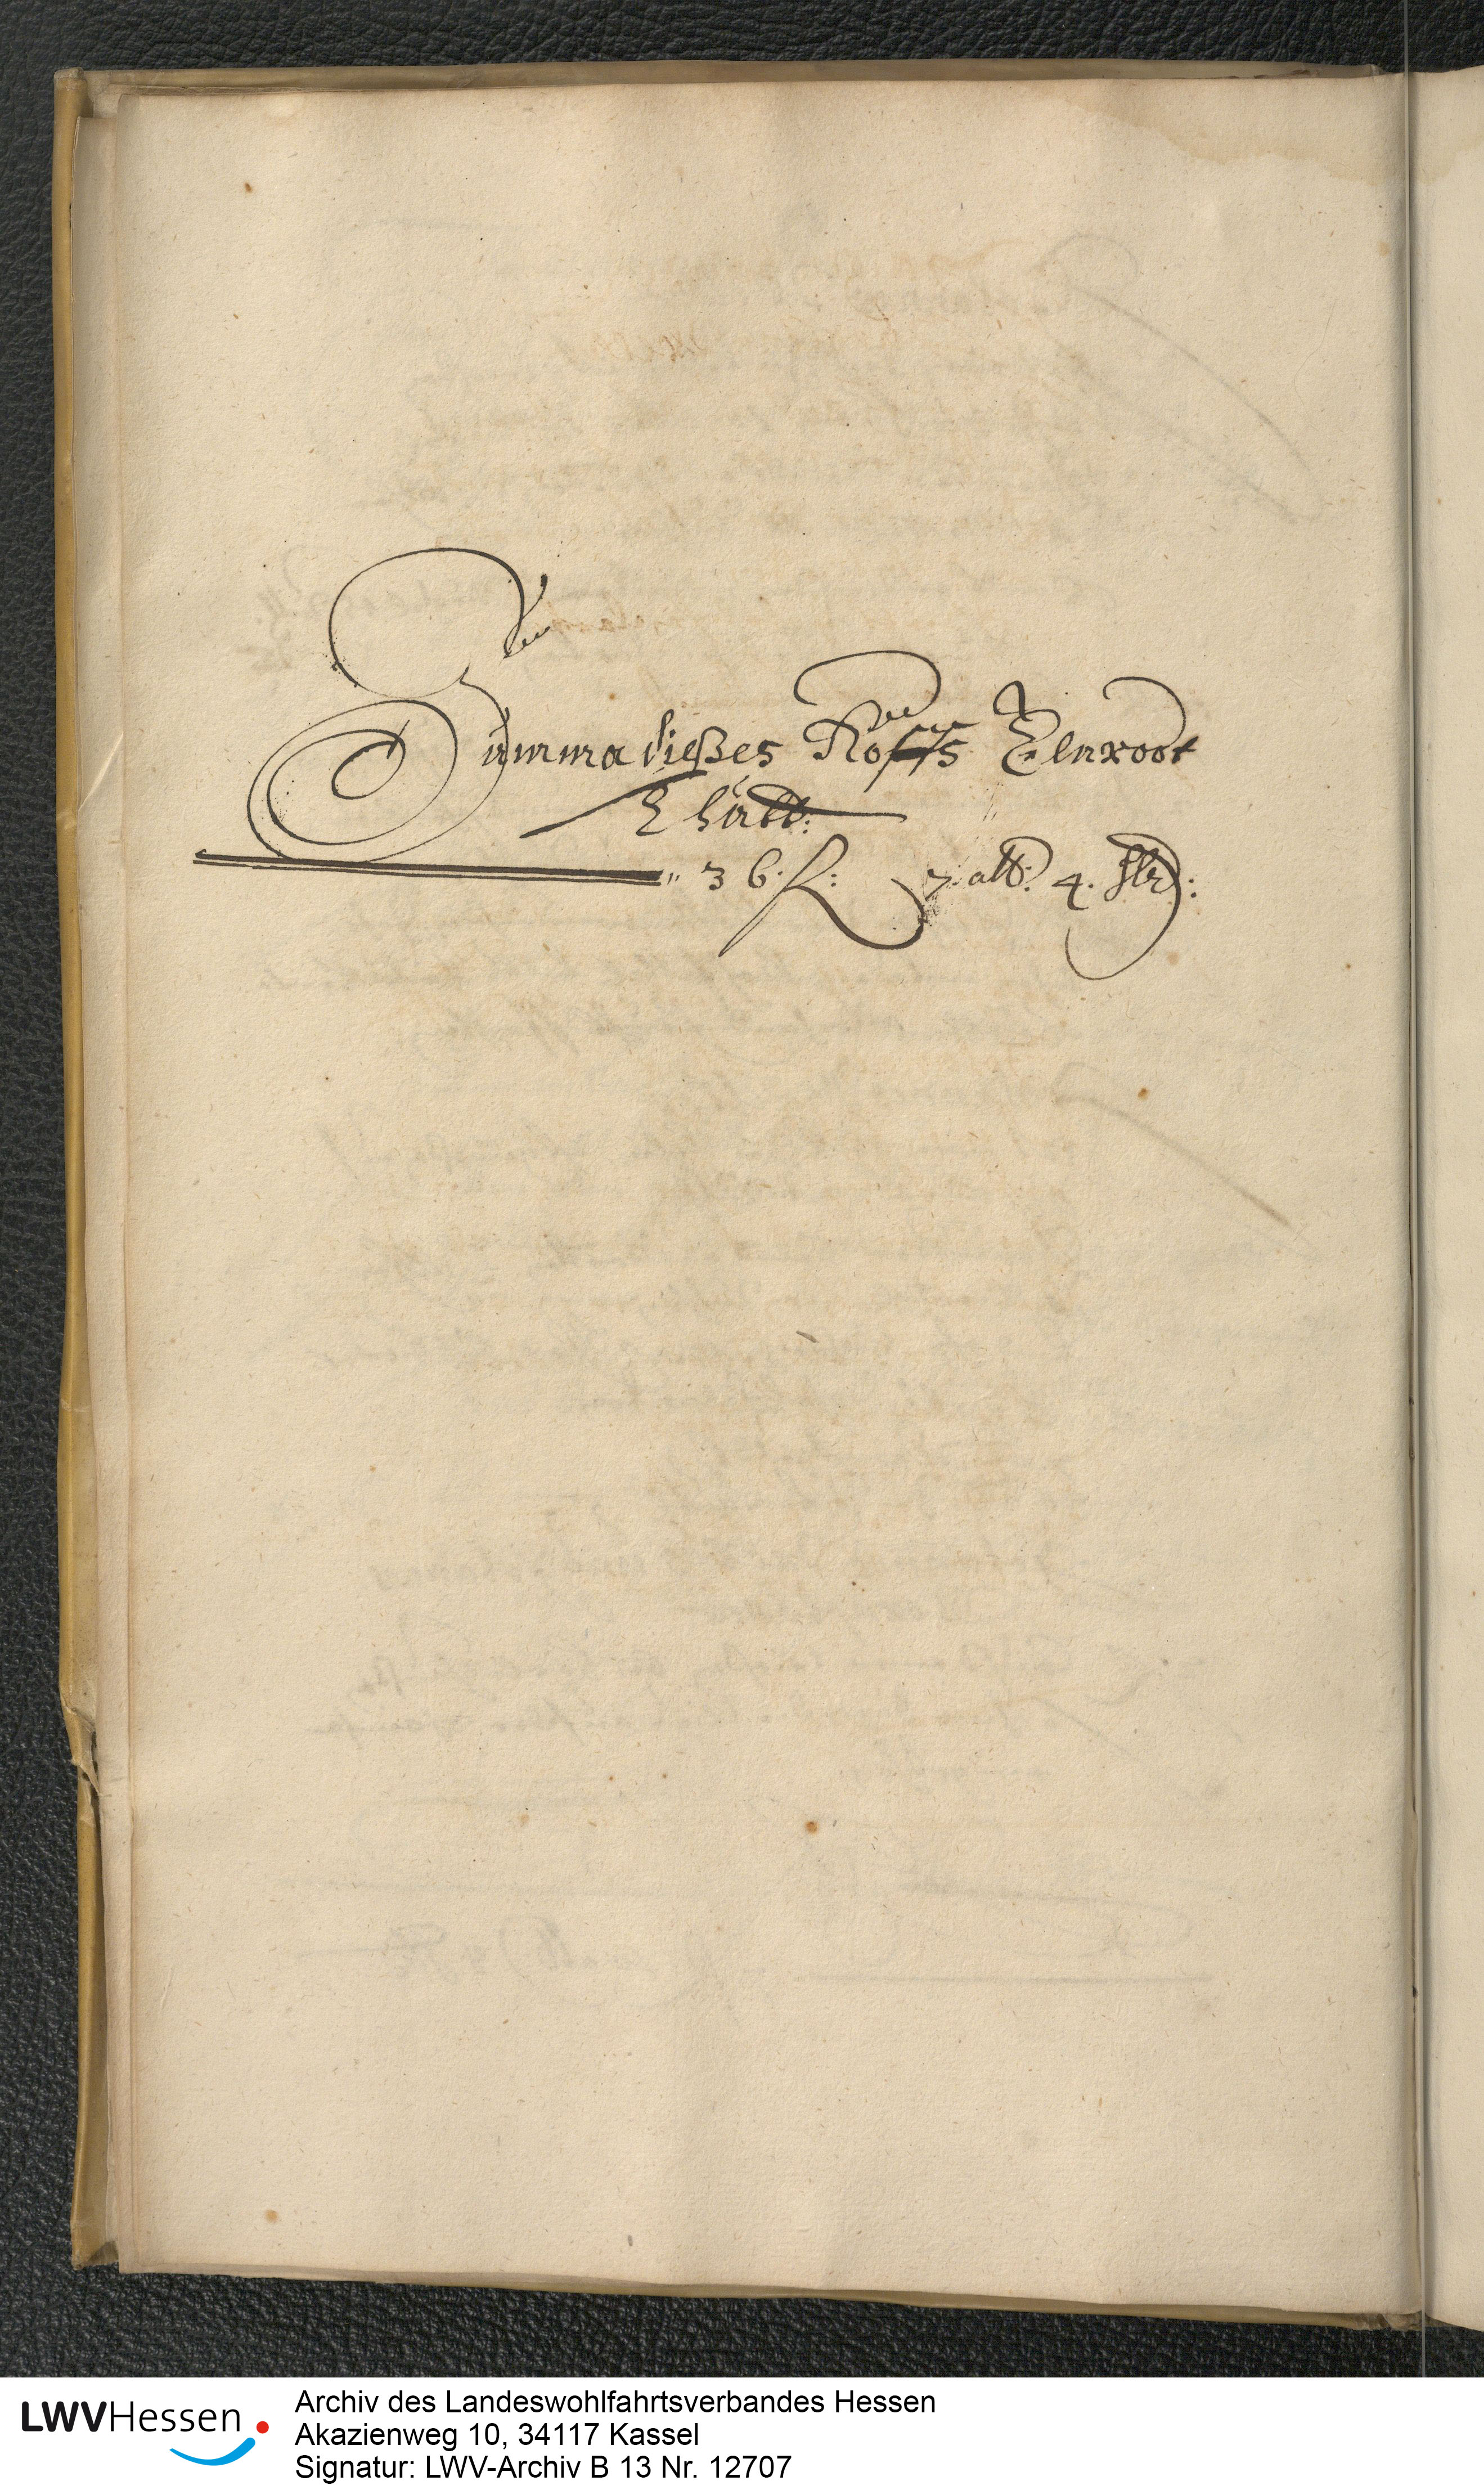 Summa dießes Hoffs
thutt:
36. fl: 7. alb: 4. hlr:
LWVHessen
Archiv des Landeswohlfahrtsverbandes Hessen
Akazienweg 10, 34117 Kassel
Signatur: LWV-Archiv B 13 Nr. 12707